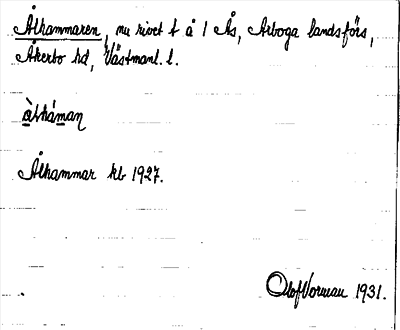 Ålhammaren, nu rivet t å 1 Ås, Arboga landsförs,
Åkerbo hd, Västmanl. l.
àlháman
Ålhammar kb 1927.
Olof Vorman 1931.